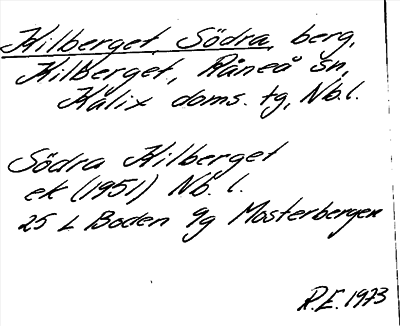 Kilberget, Södra, berg,
Kilberget, Råneå sn,
Kalix doms. tg, Nb.l.
Södra Kilberget
ek (1951) Nb. l.
25 L Boden 9g Mosterbergen
R.E. 1973